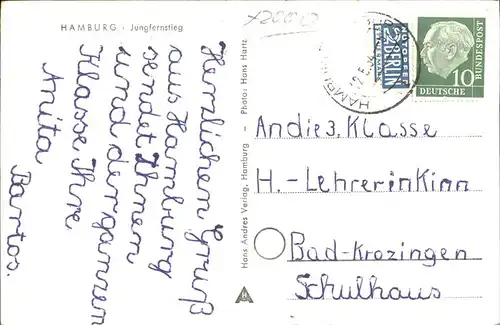 HAMBURG · Jungfernstieg
Herzlichen Gruß
aus Hamburg
sendet Ihnen
und der ganzen
Klasse Ihre
Anita
Bartos.
Hans Andres Verlag, Hamburg - Photo: Hans Hartz
NOTOPFER
2 BERLIN
STEUERMARKE
DEUTSCHE
BUNDESPOST
10
HAMBURG
An die 3. Klasse
H.-Lehrerin Kinn
Bad-Krozingen
Schulhaus